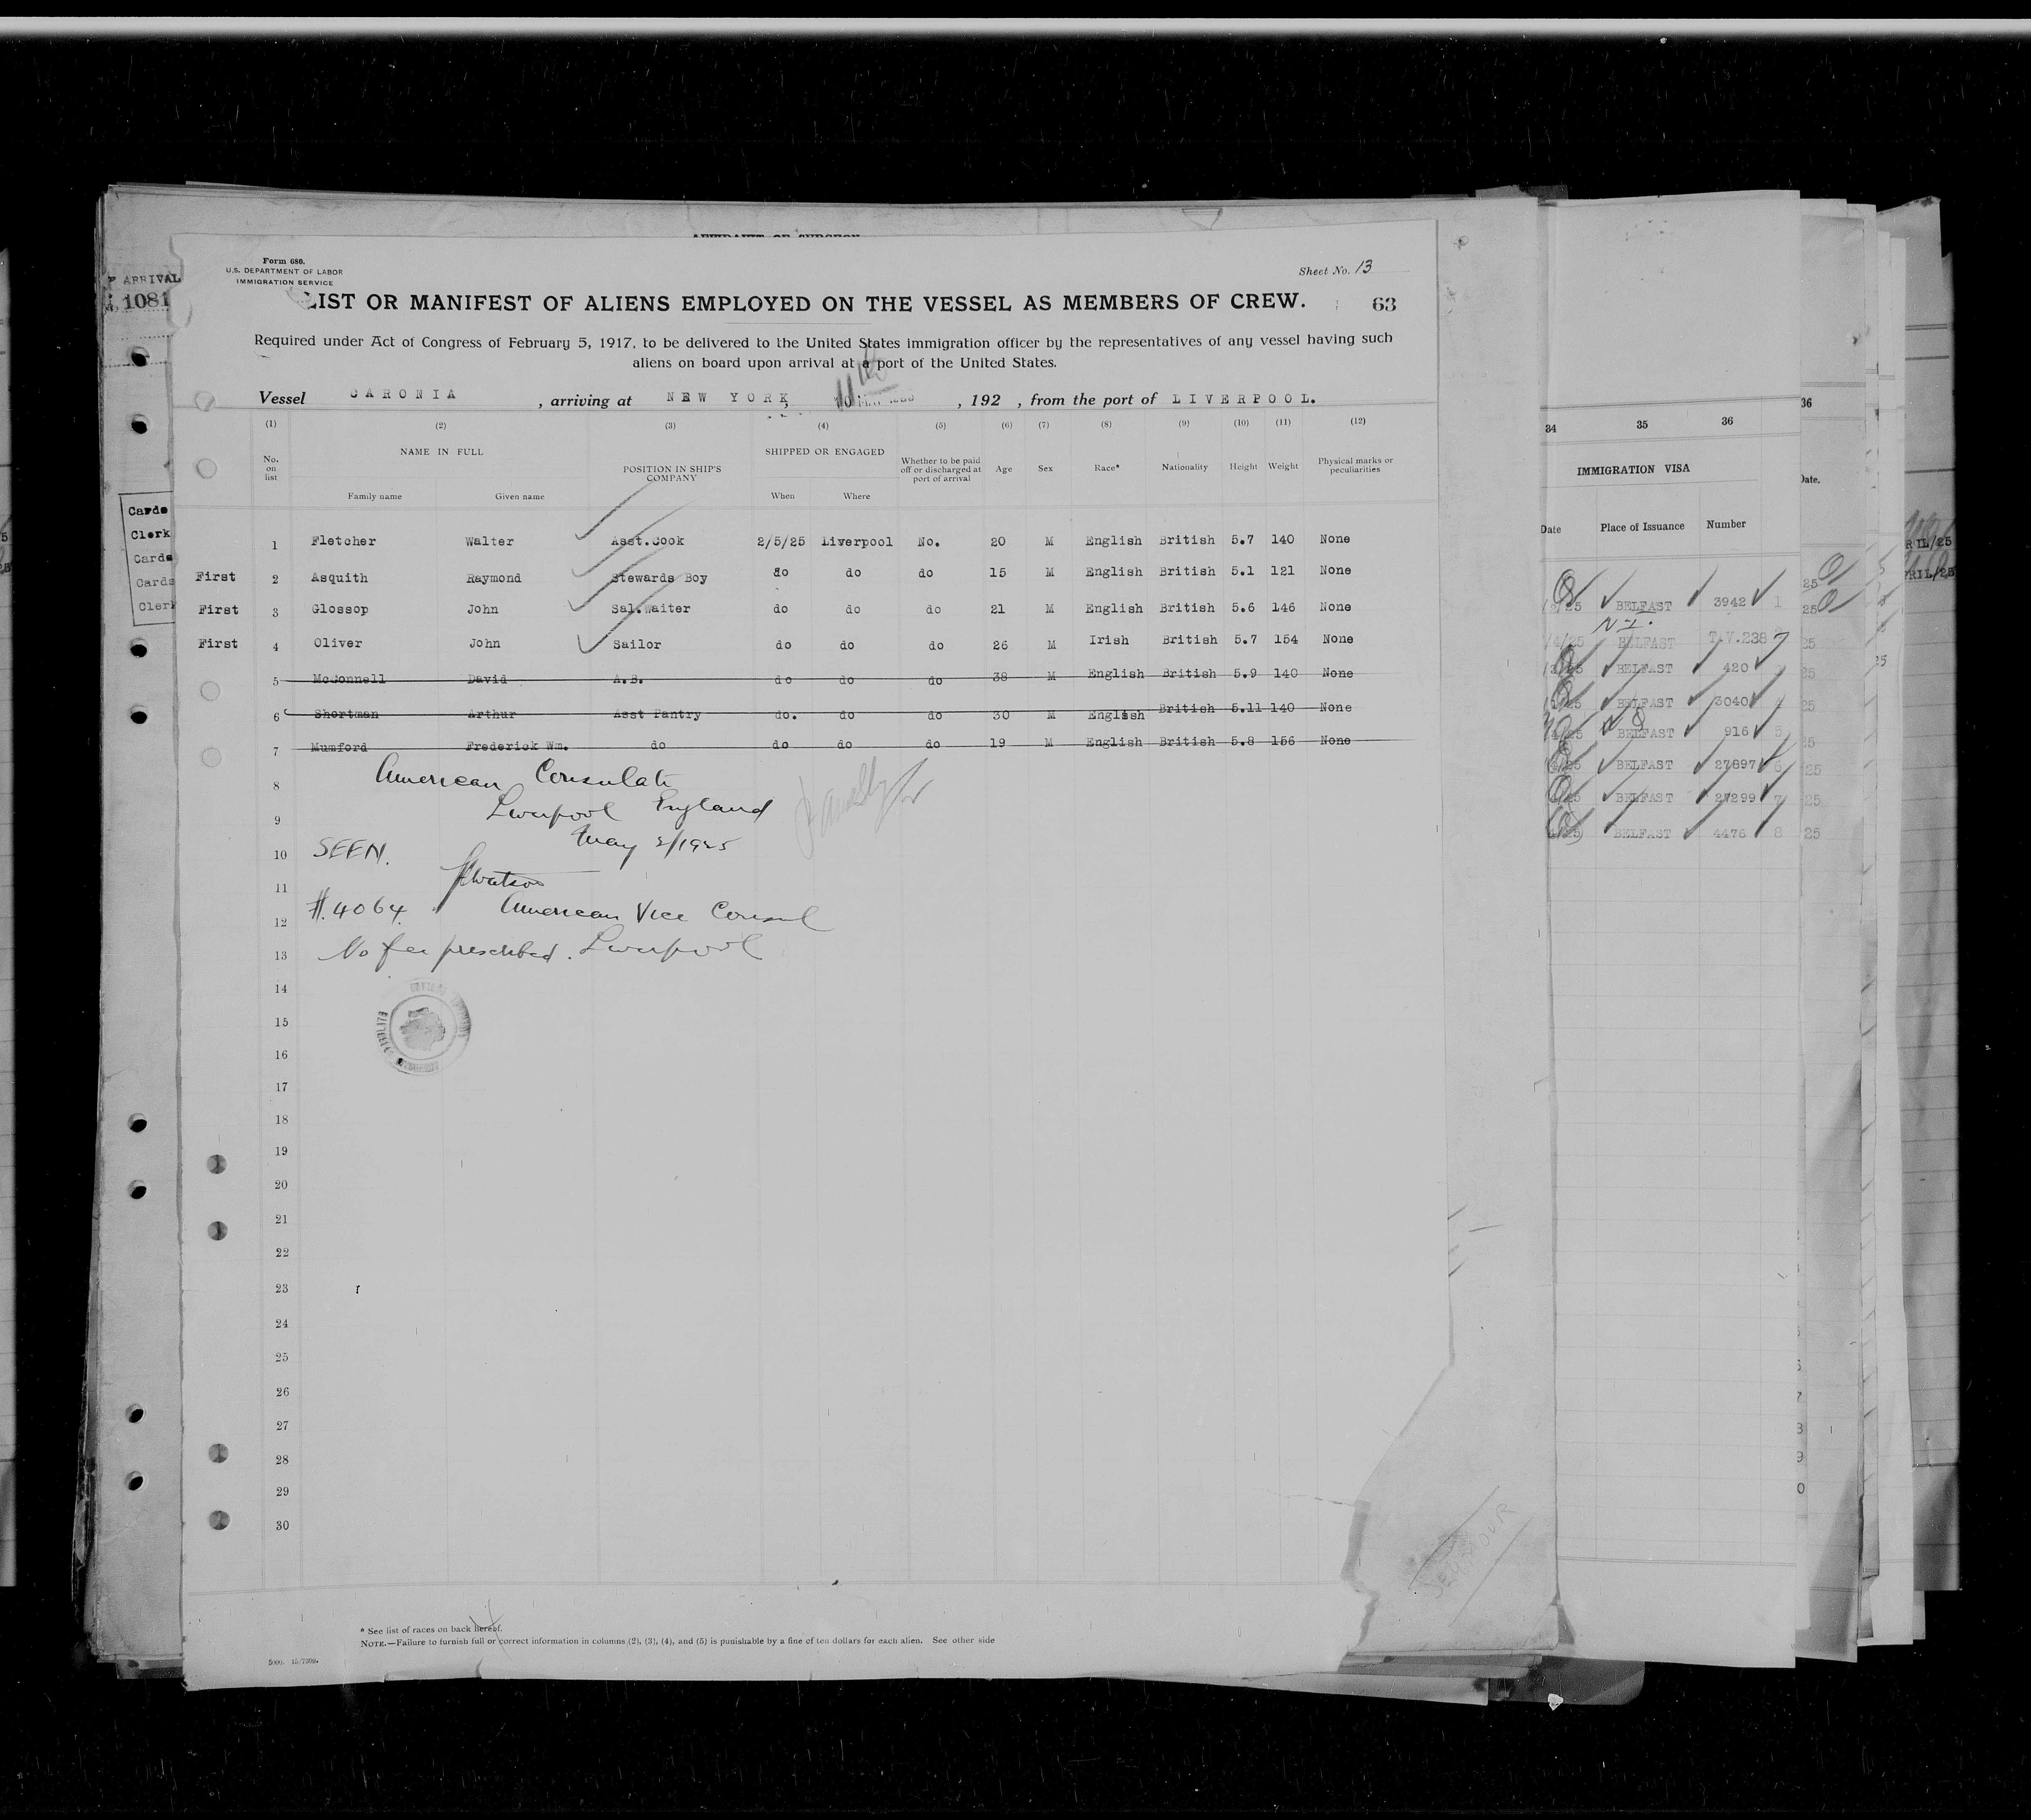 Form 680.
U.S. DEPARTMENT OF LABOR
IMMIGRATION SERVICE
Sheet No. 13
LIST OR MANIFEST OF ALIENS EMPLOYED ON THE VESSEL AS MEMBERS OF CREW. 63
Required under Act of Congress of February 5, 1917, to be delivered to the United States immigration officer by the representatives of any vessel having such
aliens on board upon arrival at a port of the United States.
Vessel CARONIA , arriving at NEW YORK, , 192 , from the port of LIVERPOOL.
(1) (2) (3) (4) (5) (6) (7) (8) (9) (10) (11) (12)
No. on list NAME IN FULL POSITION IN SHIP'S COMPANY SHIPPED OR ENGAGED Whether to be paid off or discharged at port of arrival Age Sex Race* Nationality Height Weight Physical marks or peculiarities
Family name Given name When Where
1 Fletcher Walter Asst.Cook 2/5/25 Liverpool No. 20 M English British 5.7 140 None
First 2 Asquith Raymond Stewards Boy do do do 15 M English British 5.1 121 None
First 3 Glossop John Sal.Waiter do do do 21 M English British 5.6 146 None
First 4 Oliver John Sailor do do do 26 M Irish British 5.7 154 None
5 McConnell David A.B. do do do 38 M English British 5.9 140 None
6 Shortman Arthur Asst Pantry do. do do 30 M English British 5.11 140 None
7 Mumford Frederick Wm. do do do do 19 M English British 5.8 156 None
8 American Consulate
9 Liverpool England
May 2/1925
10 SEEN.
11 Watson
12 #.4064. American Vice Consul
13 No fee prescribed. Liverpool
14
15
16
17
18
19
20
21
22
23
24
25
26
27
28
29
30
* See list of races on back hereof.
NOTE.—Failure to furnish full or correct information in columns (2), (3), (4), and (5) is punishable by a fine of ten dollars for each alien. See other side
ARRIVAL
1081
Cards
Clerk
Cards
Cards
Clerk
34 35 36
IMMIGRATION VISA
Date Place of Issuance Number
BELFAST 3942 1
N-I.
BELFAST T.V.238
BELFAST 420
BELFAST 3040 4
BELFAST 916 5
BELFAST 27897 6
BELFAST 27299 7
BELFAST 4476 8
36
Date.
25
25
25
25
25
25
25
25
25
RIL/25
PRIL/25
SEYMOUR